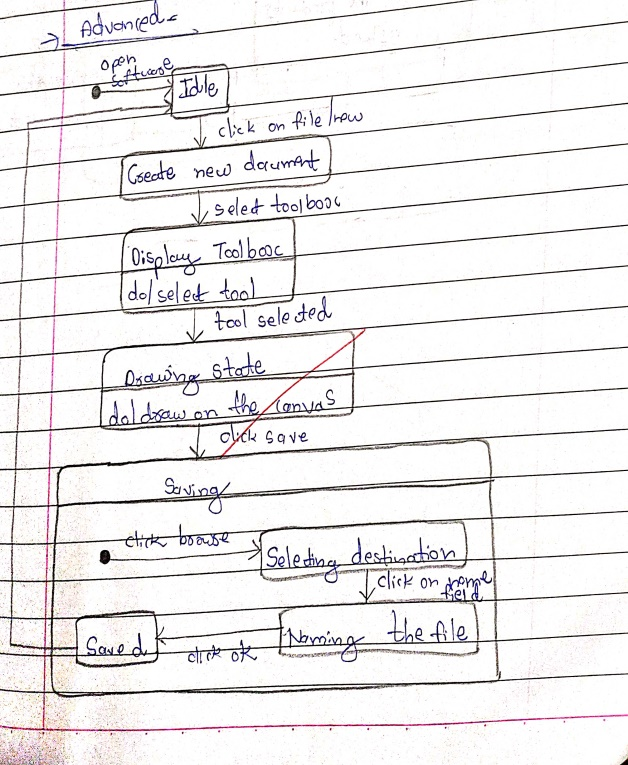 → Advanced -
open
software
Idle
click on file/new
Create new document
select toolbox
Display Toolbox
do/select tool
tool selected
Drawing state
do/draw on the canvas
click save
Saving
click browse
Selecting destination
click on name
field
Naming the file
click ok
Saved